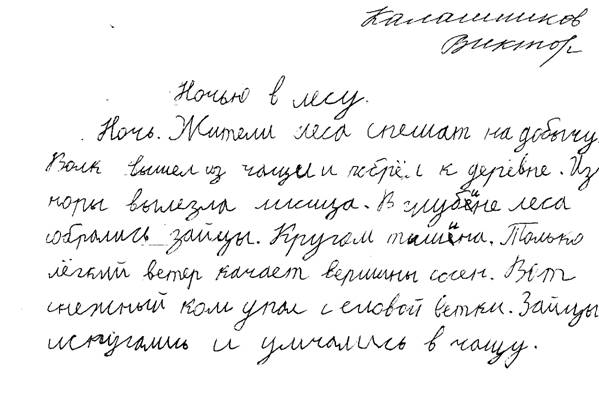 Калашников
Виктор
Ночью в лесу.
Ночь. Жители леса спешат на добычу.
Волк вышел из чащи и побрёл к деревне. Из
норы вылезла лисица. В глубине леса
собрались зайцы. Кругом тишина. Только
лёгкий ветер качает вершины сосен. Вот
снежный ком упал с еловой ветки. Зайцы
испугались и умчались в чащу.